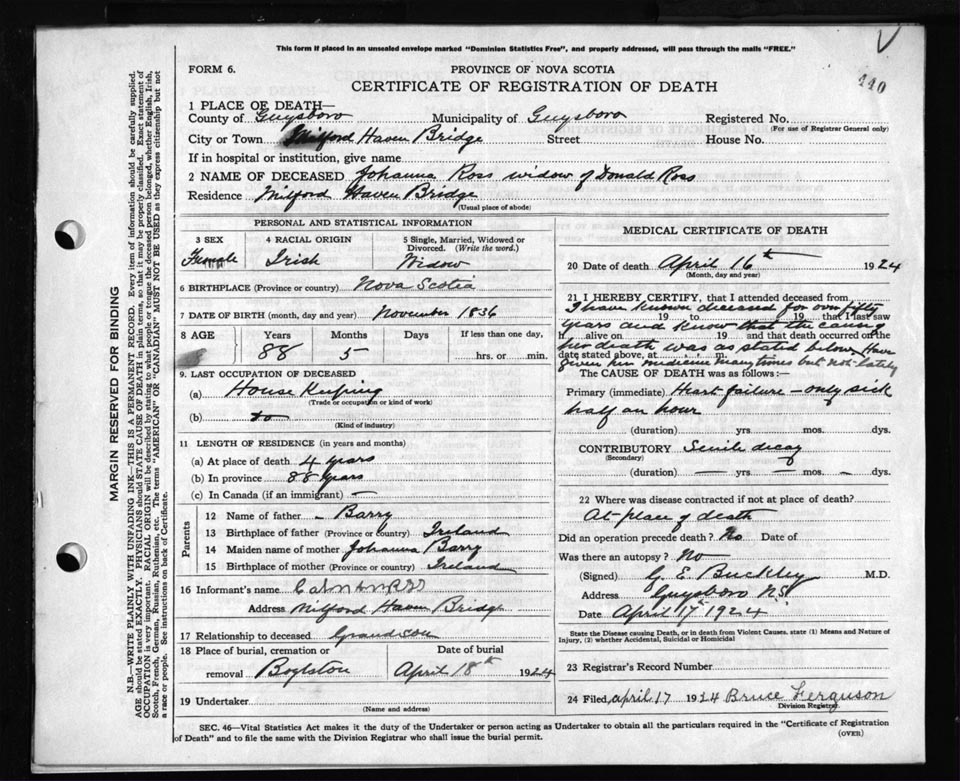 This form if placed in an unsealed envelope marked "Dominion Statistics Free", and properly addressed, will pass through the mails "FREE."
FORM 6.
PROVINCE OF NOVA SCOTIA
CERTIFICATE OF REGISTRATION OF DEATH
110
1 PLACE OF DEATH—
County of Guysboro Municipality of Guysboro Registered No.
(For use of Registrar General only)
City or Town Milford Haven Bridge Street House No.
If in hospital or institution, give name
2 NAME OF DECEASED Johanna Ross widow of Donald Ross
Residence Milford Haven Bridge
(Usual place of abode)
PERSONAL AND STATISTICAL INFORMATION
3 SEX 4 RACIAL ORIGIN 5 Single, Married, Widowed or Divorced. (Write the word.)
Female Irish Widow
6 BIRTHPLACE (Province or country) Nova Scotia
7 DATE OF BIRTH (month, day and year) November 1836
8 AGE Years Months Days If less than one day,
88 5 hrs. or min.
9. LAST OCCUPATION OF DECEASED
(a) House Keeping
(Trade or occupation or kind of work)
(b) do
(Kind of industry)
11 LENGTH OF RESIDENCE (in years and months)
(a) At place of death 4 years
(b) In province 88 years
(c) In Canada (if an immigrant) —
Parents
12 Name of father – Barry
13 Birthplace of father (Province or country) Ireland
14 Maiden name of mother Johanna Barry
15 Birthplace of mother (Province or country) Ireland
16 Informant's name
Address Milford Haven Bridge
17 Relationship to deceased Grandson
18 Place of burial, cremation or removal Boylston
Date of burial April 18th 1924
19 Undertaker
(Name and address)
MEDICAL CERTIFICATE OF DEATH
20 Date of death April 16th 1924
(Month, day and year)
21 I HEREBY CERTIFY, that I attended deceased from
I have known deceased for over fifty
19 to 19 that I last saw
years and know that the cause of
h alive on 19 and that death occurred on the
her death was as stated below, have
date stated above, at m.
given her medicine many times but not lately
The CAUSE OF DEATH was as follows:—
Primary (immediate) Heart failure – only sick
half an hour
(duration) yrs. mos. dys.
CONTRIBUTORY Senile decay
(Secondary)
(duration) — yrs. — mos. — dys.
22 Where was disease contracted if not at place of death?
At place of death
Did an operation precede death? No Date of
Was there an autopsy? No
(Signed) G. E. Buckley M.D.
Address Guysboro N.S.
Date April 17th 1924
State the Disease causing Death, or in death from Violent Causes, state (1) Means and Nature of Injury, (2) whether Accidental, Suicidal or Homicidal
23 Registrar's Record Number
24 Filed, April 17 1924 Bruce Ferguson
Division Registrar
SEC. 46—Vital Statistics Act makes it the duty of the Undertaker or person acting as Undertaker to obtain all the particulars required in the "Certificate of Registration
of Death" and to file the same with the Division Registrar who shall issue the burial permit.
(OVER)
MARGIN RESERVED FOR BINDING
N.B.—WRITE PLAINLY WITH UNFADING INK—THIS IS A PERMANENT RECORD. Every item of information should be carefully supplied.
AGE should be stated EXACTLY. PHYSICIANS should STATE CAUSE OF DEATH in plain terms, so that it may be properly classified. Exact statement of
OCCUPATION is very important. RACIAL ORIGIN will be described by stating to what people or tongue the deceased person belonged, whether English, Irish,
Scotch, French, German, Russian, Ruthenian, etc. The terms "AMERICAN" OR "CANADIAN" MUST NOT BE USED as they express citizenship but not
a race or people. See instructions on back of Certificate.